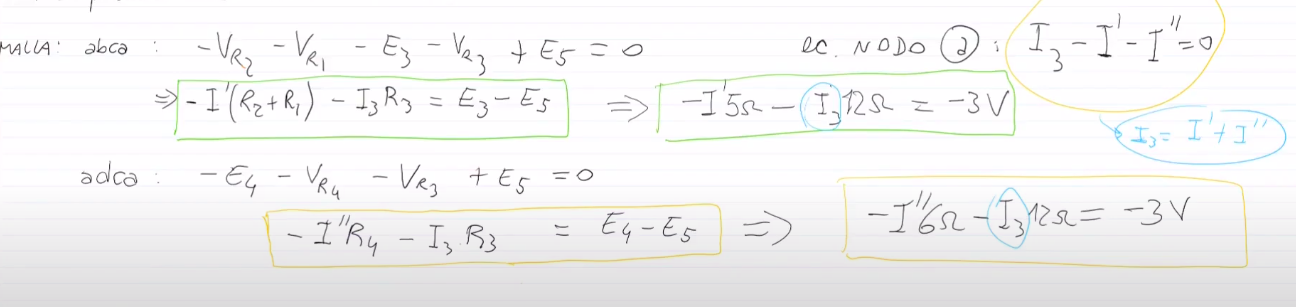 MALLA: abca : -V_R2 - V_R1 - E3 - V_R3 + E5 = 0 ec. NODO ⓐ : I3 - I' - I'' = 0
⇒ -I'(R2+R1) - I3R3 = E3 - E5 ⇒ -I'5Ω - I312Ω = -3V
I3 = I' + I''
adca : -E4 - V_R4 - V_R3 + E5 = 0
-I''R4 - I3 R3 = E4 - E5 ⇒ -I''6Ω - I312Ω = -3V